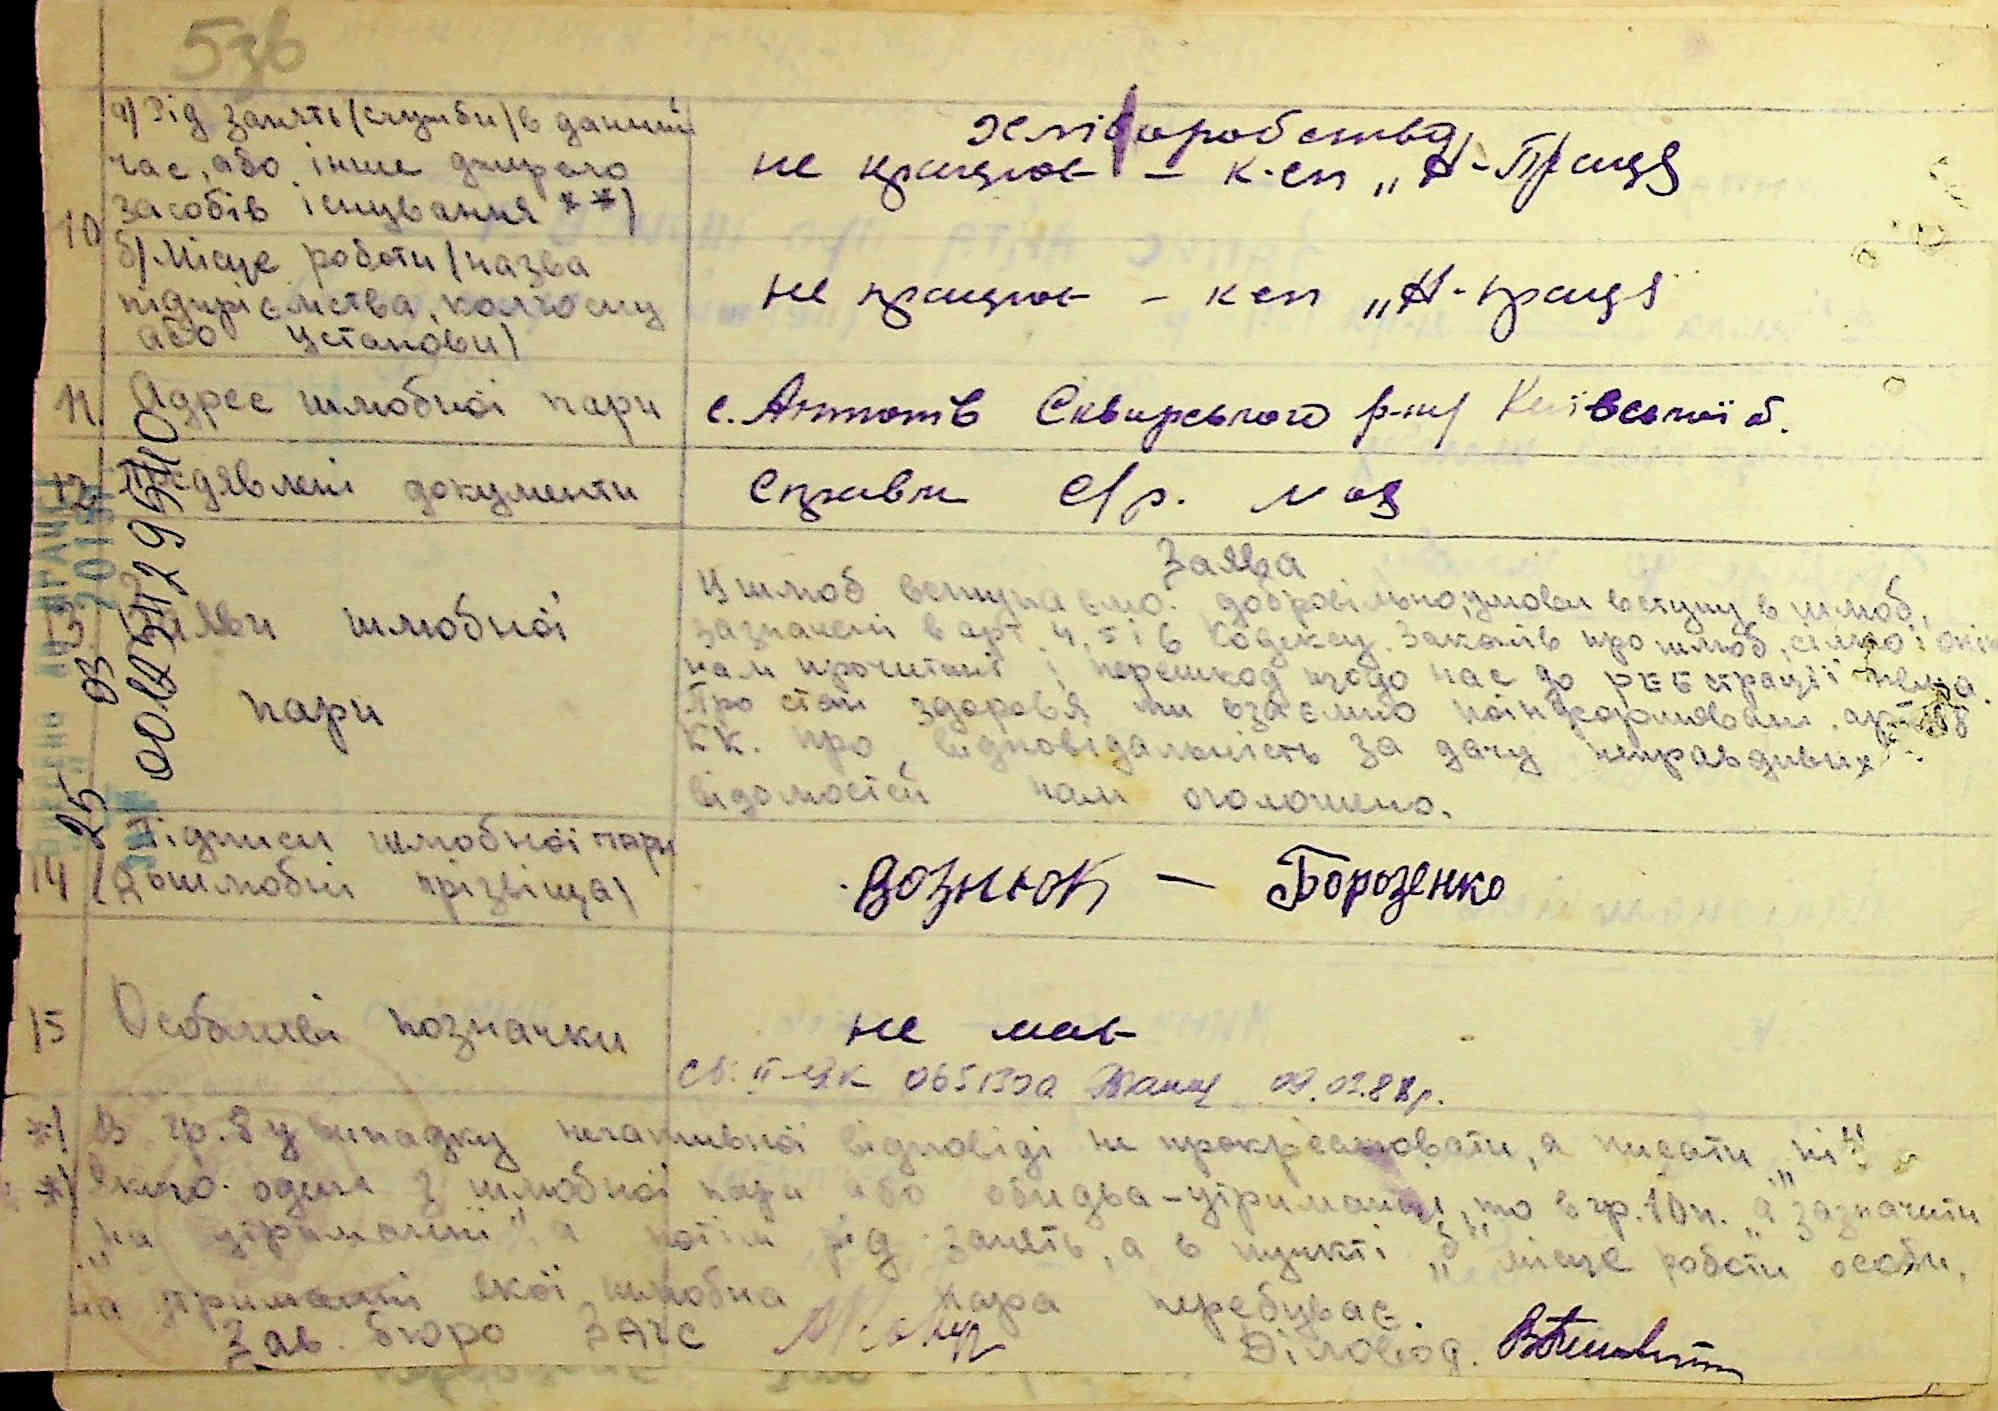 а) Рід занять (служби) в данний
час, або інше джерело
засобів існування **)
хліборобство
не працює – к-сп „Н-Праця
10
б) Місце роботи (назва
підприємства, колгоспу
або установи)
не працює – ксп „Н-праця
11. Адрес шлюбної пари
с. Антонів Сквирського р-ну Київської об.
12 Предявлені документи
Справки с/р.
13. Заяви шлюбної
пари
Заява
У шлюб вступаємо добровільно, умови вступу в шлюб,
зазначені в арт. 4, 5 і 6 Кодексу Законів про шлюб, сімю і опік
нам прочитані і перешкод щодо нас до реєстрації нема.
Про стан здоровя ми взаємно поінформовані. арт.
КК. про відповідальність за дачу неправдивих
відомостей нам оголошено.
14 Підписи шлюбної пари
(дошлюбні прізвища)
Вознюк — Борозенко
15 Особливі позначки
не має
09.02.88р.
*) В гр. 8 у випадку негативної відповіді не прокреслювати, а писати „ні"
**) Якщо один з шлюбної пари або обидва - утриманці, то в гр. 10 п. „а" зазначити
„на утриманні", а потім рід занять, а в пункті „б" місце роботи особи,
на утриманні якої шлюбна пара перебуває.
Зав. бюро ЗАГС
Діловод.
25 03